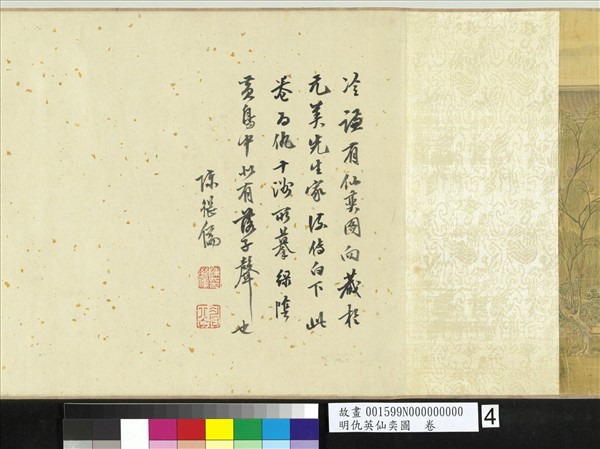 冷謙有仙奕圖向藏於
元美先生家流傳白下此
卷為仇十洲所摹綠陰
黃鳥中。如有落子聲也
陳繼儒
故畫 001599N000000000
明仇英仙奕圖 卷
4